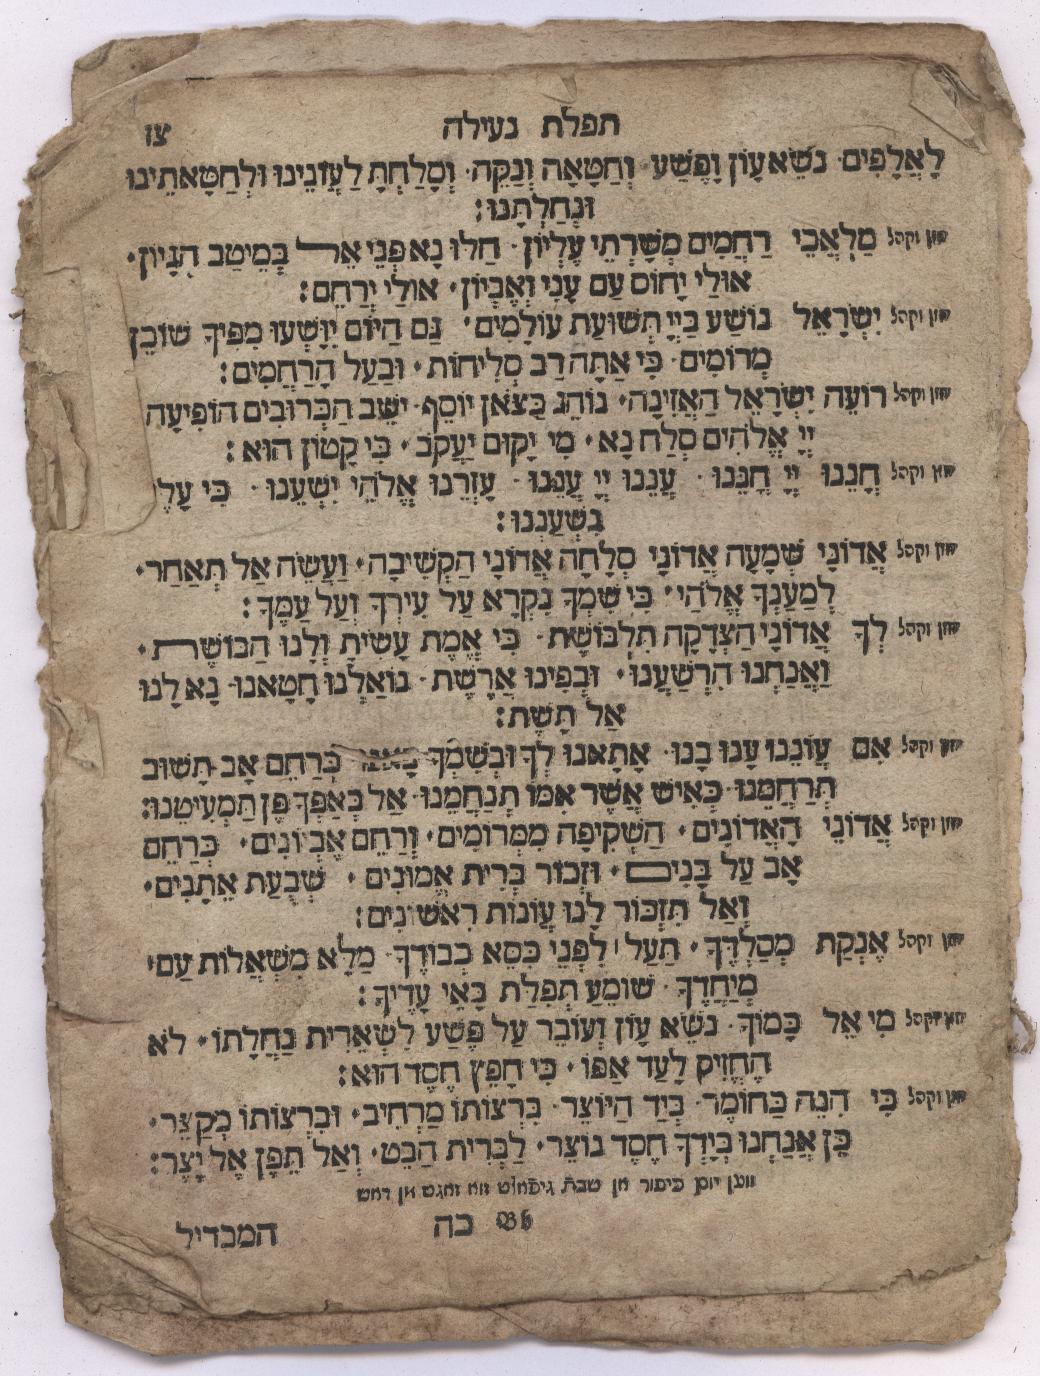 תפלת נעילה
צו
לָאֲלָפִים· נֹשֵׂא עָוֹן וָפֶשַׁע· וְחַטָּאָה וְנַקֵּה· וְסָלַחְתָּ לַעֲוֹנֵינוּ וּלְחַטָּאתֵינוּ
וּנְחַלְתָּנוּ׃
חזן וקהל מַלְאֲכֵי רַחֲמִים מְשָׁרְתֵי עֶלְיוֹן· חַלּוּ נָא פְּנֵי אֵל בְּמֵיטַב הִגָּיוֹן·
אוּלַי יָחוֹס עַם עָנִי וְאֶבְיוֹן· אוּלַי יְרַחֵם׃
חזן וקהל יִשְׂרָאֵל נוֹשַׁע בַּיְיָ תְּשׁוּעַת עוֹלָמִים· גַּם הַיּוֹם יִוָּשְׁעוּ מִפִּיךָ שׁוֹכֵן
מְרוֹמִים· כִּי אַתָּה רַב סְלִיחוֹת· וּבַעַל הָרַחֲמִים׃
חזן וקהל רוֹעֵה יִשְׂרָאֵל הַאֲזִינָה· נוֹהֵג כַּצֹּאן יוֹסֵף· יֹשֵׁב הַכְּרוּבִים הוֹפִיעָה
יְיָ אֱלֹהִים סְלַח נָא· מִי יָקוּם יַעֲקֹב· כִּי קָטוֹן הוּא׃
חזן וקהל חָנֵּנוּ יְיָ חָנֵּנוּ· עֲנֵנוּ יְיָ עֲנֵנוּ· עָזְרֵנוּ אֱלֹהֵי יִשְׁעֵנוּ· כִּי עָלֶי
נִשְׁעָנְנוּ׃
חזן וקהל אֲדוֹנָי שְׁמָעָה אֲדוֹנָי סְלָחָה אֲדוֹנָי הַקְשִׁיבָה· וַעֲשֵׂה אַל תְּאַחַר·
לְמַעַנְךָ אֱלֹהַי· כִּי שִׁמְךָ נִקְרָא עַל עִירְךָ וְעַל עַמֶּךָ׃
חזן וקהל לְךָ אֲדוֹנָי הַצְּדָקָה תִלְבּוֹשֶׁת· כִּי אֱמֶת עָשִׂיתָ וְלָנוּ הַבּוֹשֶׁת·
וַאֲנַחְנוּ הִרְשַׁעְנוּ· וּבְפִינוּ אֲרֶשֶׁת· נוֹאַלְנוּ חָטָאנוּ· נָא לָנוּ
אַל תָּשֶׁת׃
חזן וקהל אִם עֲוֹנֵנוּ עָנוּ בָנוּ· אָתָאנוּ לְךָ וּבְשִׁמְךָ כְּרַחֵם אָב תָּשׁוּב
תְּרַחֲמֵנוּ· כְּאִישׁ אֲשֶׁר אִמּוֹ תְּנַחֲמֵנוּ· אַל בְּאַפְּךָ פֶּן תַּמְעִיטֵנוּ׃
חזן וקהל אֲדוֹנֵי הָאֲדוֹנִים· הַשְׁקִיפָה מִמְּרוֹמִים· וְרַחֵם אֶבְיוֹנִים· כְּרַחֵם
אָב עַל בָּנִים· וּזְכוֹר בְּרִית אֱמוּנִים· שְׁבֻעַת אֵתָנִים·
וְאַל תִּזְכּוֹר לָנוּ עֲוֹנוֹת רִאשׁוֹנִים׃
חזן וקהל אֶנְקַת מְסַלְּדֶיךָ· תַּעַל לִפְנֵי כִּסֵּא כְבוֹדֶךָ· מַלֵּא מִשְׁאֲלוֹת עַם·
מְיַחֲדֶךָ· שׁוֹמֵעַ תְּפִלַּת בָּאֵי עָדֶיךָ׃
חזן וקהל מִי אֵל כָּמוֹךָ· נֹשֵׂא עָוֹן וְעוֹבֵר עַל פֶּשַׁע לִשְׁאֵרִית נַחֲלָתוֹ· לֹא
הֶחֱזִיק לָעַד אַפּוֹ· כִּי חָפֵץ חֶסֶד הוּא׃
חזן וקהל כִּי הִנֵּה כַּחוֹמֶר· בְּיַד הַיּוֹצֵר· בִּרְצוֹתוֹ מַרְחִיב· וּבִרְצוֹתוֹ מְקַצֵּר·
כֵּן אֲנַחְנוּ בְּיָדְךָ חֶסֶד נוֹצֵר· לַבְּרִית הַבֵּט· וְאַל תֵּפֶן אֶל יֵצֶר׃
ווען יום כיפור אן שבת גיפֿאלט זוא זאגט אן דאש
המבדיל כה B b